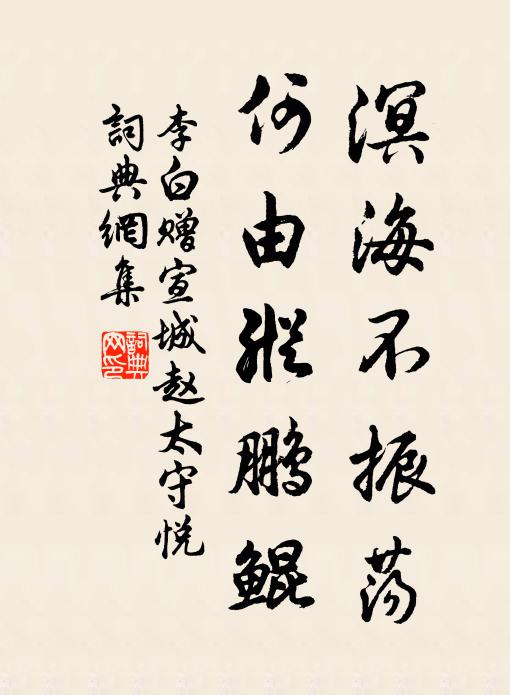 溟海不振荡
何由縱鹏鲲
李白赠宣城赵太守悦
詞典網集
詞典
网印